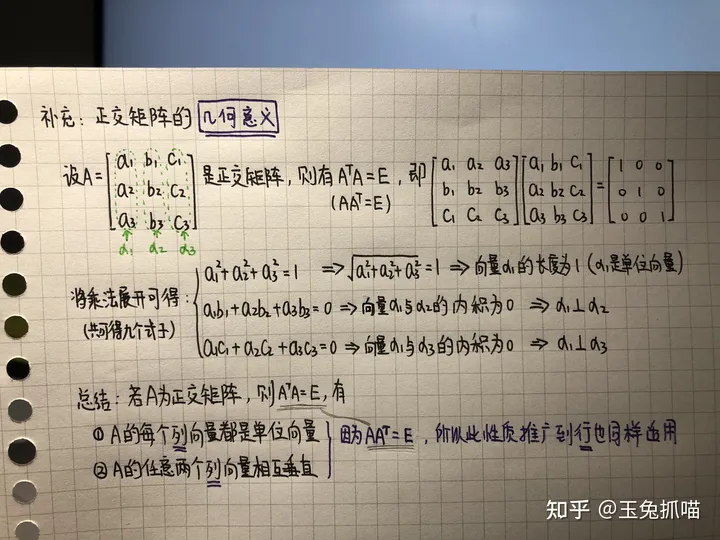 补充：正交矩阵的 几何意义
设A=[a₁ b₁ c₁; a₂ b₂ c₂; a₃ b₃ c₃]是正交矩阵，则有AᵀA=E，即[a₁ a₂ a₃; b₁ b₂ b₃; c₁ c₂ c₃][a₁ b₁ c₁; a₂ b₂ c₂; a₃ b₃ c₃]=[1 0 0; 0 1 0; 0 0 1]
(AAᵀ=E)
α₁ α₂ α₃
将乘法展开可得：
(共可得九个式子)
a₁²+a₂²+a₃²=1 ⇒√(a₁²+a₂²+a₃²)=1 ⇒向量α₁的长度为1（α₁是单位向量）
a₁b₁+a₂b₂+a₃b₃=0 ⇒向量α₁与α₂的内积为0 ⇒ α₁⊥α₂
a₁c₁+a₂c₂+a₃c₃=0 ⇒向量α₁与α₃的内积为0 ⇒ α₁⊥α₃
总结：若A为正交矩阵，则AᵀA=E，有
① A的每个列向量都是单位向量
② A的任意两个列向量相互垂直
因为AAᵀ=E，所以此性质推广到行也同样适用
知乎 @玉兔抓喵